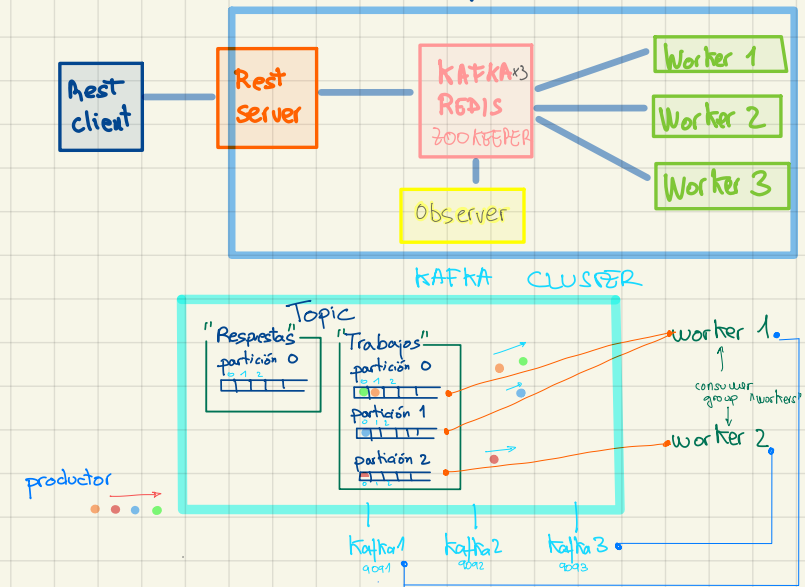 Rest
client
Rest
server
KAFKA x3
REDIS
ZOOKEEPER
Worker 1
Worker 2
Worker 3
Observer
KAFKA CLUSTER
Topic
"Respuestas"
partición 0
0 1 2
"Trabajos"
partición 0
0 1 2
partición 1
0 1 2
partición 2
0 1 2
worker 1
consumer
group "workers"
worker 2
productor
Kafka1
9091
Kafka2
9092
Kafka3
9093